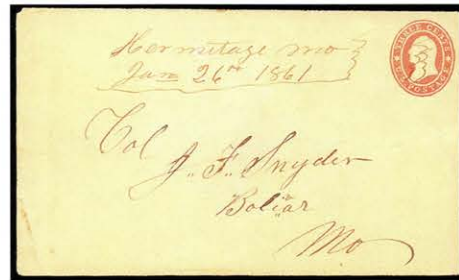 Hermitage Mo
Jan 26th 1861
THREE CENTS
U.S. POSTAGE
Col
J. F. Snyder
Bolivar
Mo